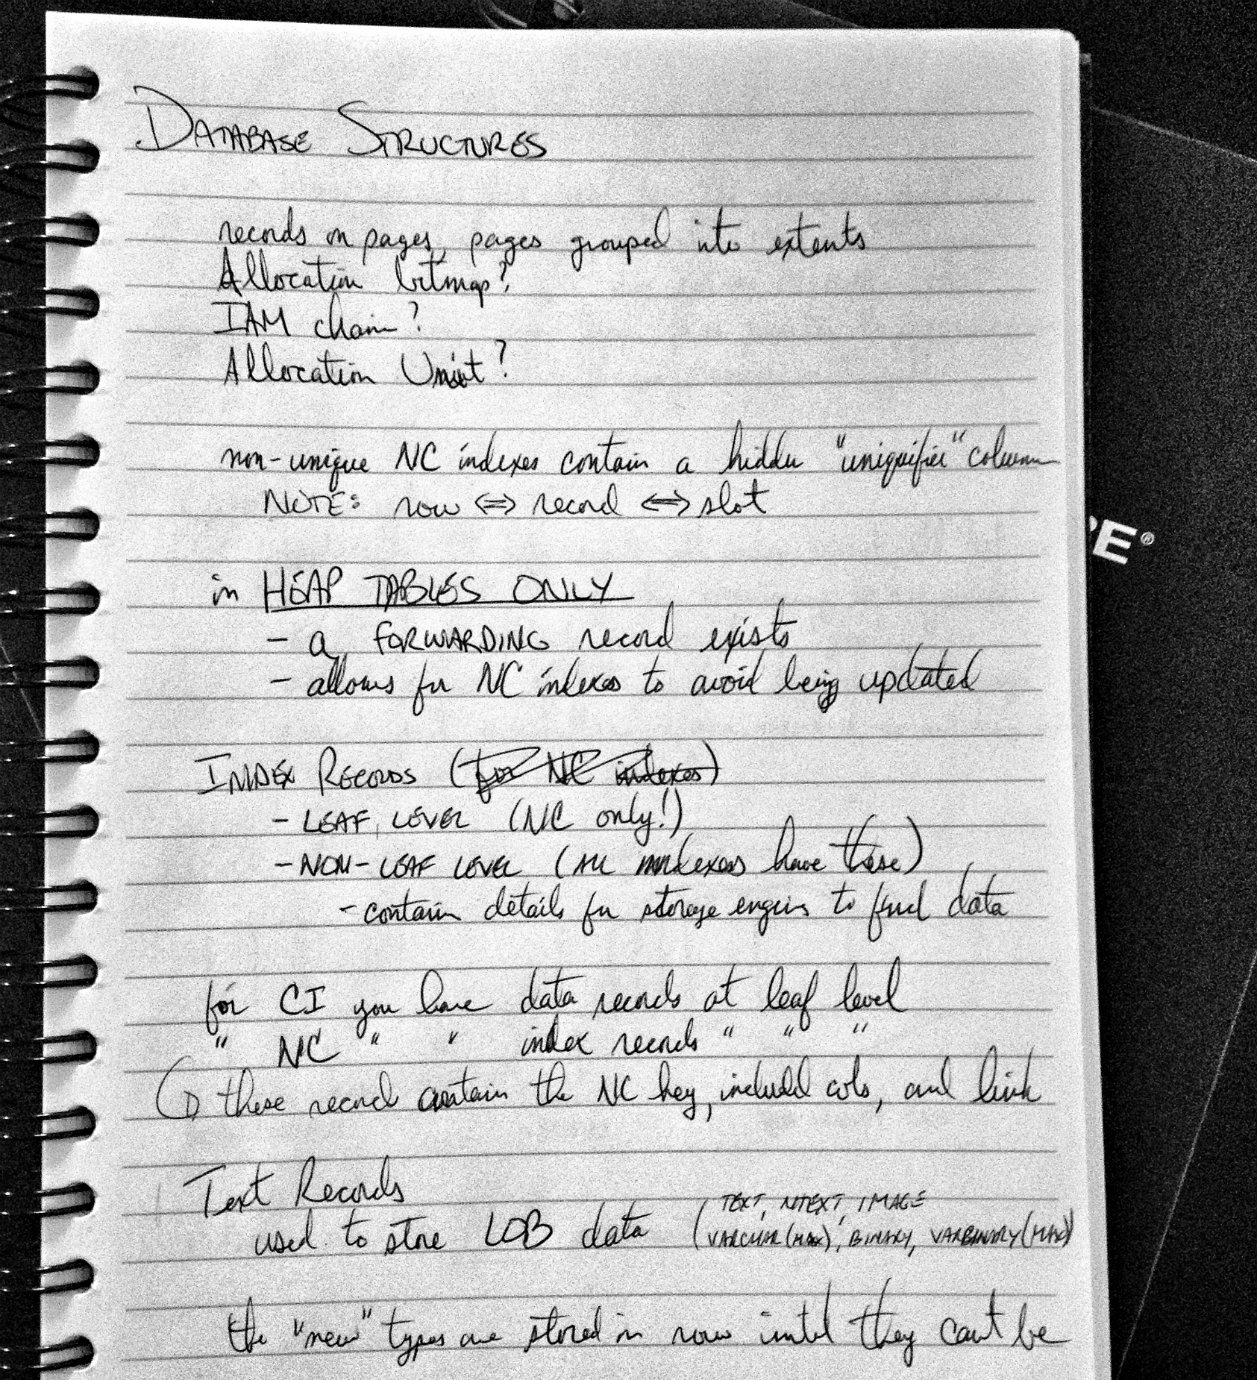 DATABASE STRUCTURES
records on pages, pages grouped into extents
Allocation bitmap?
IAM chain?
Allocation Unit?
non-unique NC indexes contain a hidden "uniquifier" column
NOTE: row <=> record <=> slot
in HEAP TABLES ONLY
- a FORWARDING record exists
- allows for NC indexes to avoid being updated
INDEX RECORDS (for NC indexes)
- LEAF LEVEL (NC only!)
- NON-LEAF LEVEL (ALL indexes have these)
- contain details for storage engine to find data
for CI you have data records at leaf level
" NC " " index records " " "
these record contain the NC key, included cols, and link
Text Records
TEXT, NTEXT, IMAGE
used to store LOB data (VARCHAR(MAX), BINARY, VARBINARY(MAX)
the "new" types are stored in row until they can't be
PE®